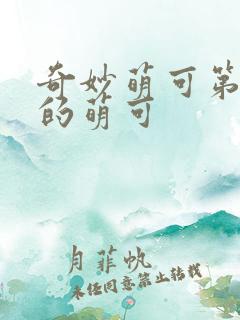 奇妙萌可第
的萌可
月菲帆
未经同意禁止转载